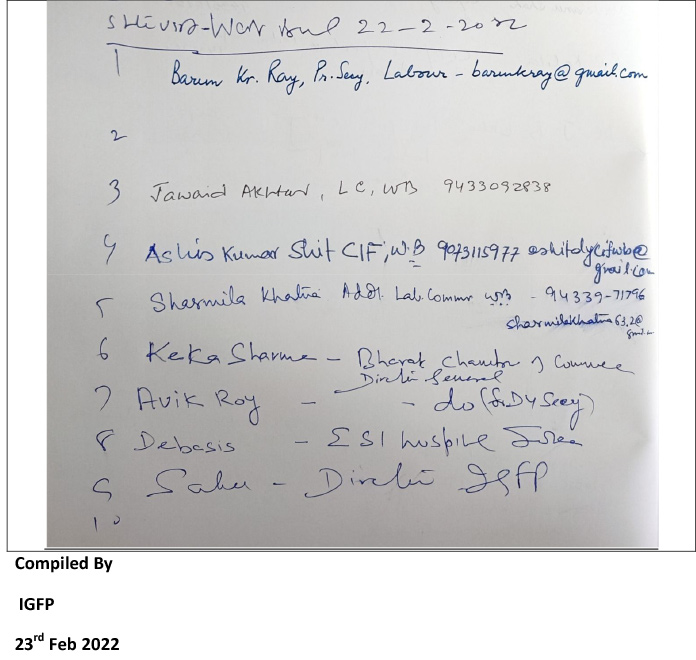 22-2-2022
1
Barun Kr. Ray, Pr. Secy, Labour - barunkray@gmail.com
2
3 Jawaid Akhtar, LC, WB 9433092838
4 Ashis Kumar Shit CIF, W.B 9073115977 ashitdycifwb@
gmail.com
5 Sharmila Khatua Addl. Lab. Commr WB - 94339-71796
sharmilakhatua63.2@
6 Keka Sharma - Bharat Chamber of Commerce
Director General
7 Avik Roy - - do (Sr. Dy Secy)
8 Debasis - ESI hospital
9 Sahu - Director IGFP
10
Compiled By
IGFP
23rd Feb 2022